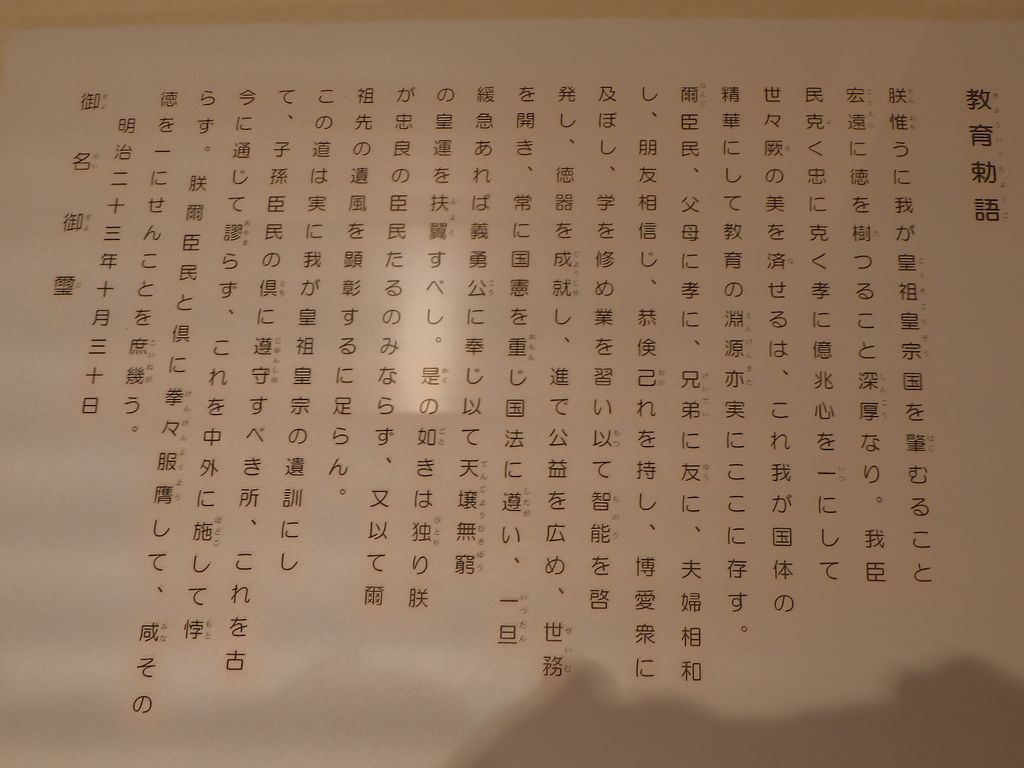 教育勅語
朕惟うに我が皇祖皇宗国を肇むること
宏遠に徳を樹つること深厚なり。我臣
民克く忠に克く孝に億兆心を一にして
世々厥の美を済せるは、これ我が国体の
精華にして教育の淵源亦実にここに存す。
爾臣民、父母に孝に、兄弟に友に、夫婦相和
し、朋友相信じ、恭倹己れを持し、博愛衆に
及ぼし、学を修め業を習い以て智能を啓
発し、徳器を成就し、進で公益を広め、世務
を開き、常に国憲を重じ国法に遵い、一旦
緩急あれば義勇公に奉じ以て天壌無窮
の皇運を扶翼すべし。是の如きは独り朕
が忠良の臣民たるのみならず、又以て爾
祖先の遺風を顕彰するに足らん。
この道は実に我が皇祖皇宗の遺訓にし
て、子孫臣民の倶に遵守すべき所、これを古
今に通じて謬らず、これを中外に施して悖
らず。朕爾臣民と倶に拳々服膺して、咸その
徳を一にせんことを庶幾う。
明治二十三年十月三十日
御名御璽